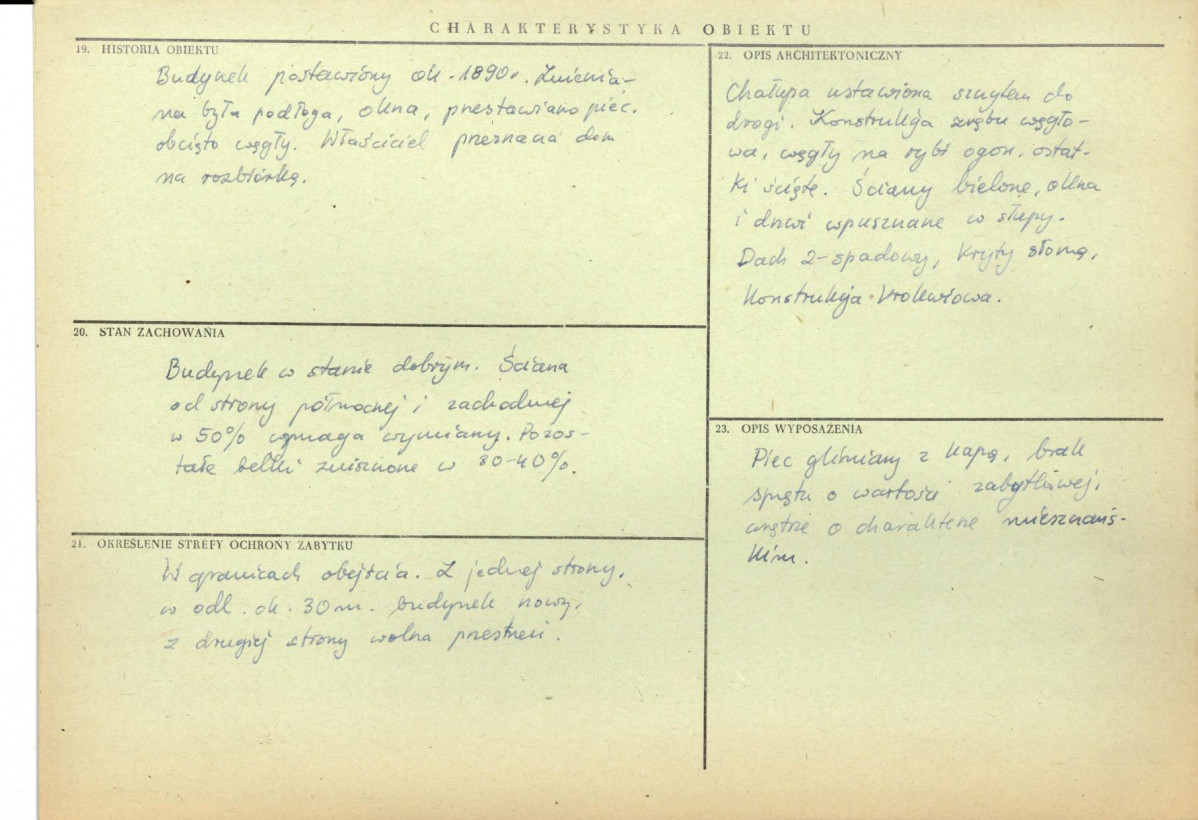 CHARAKTERYSTYKA OBIEKTU
19. HISTORIA OBIEKTU
Budynek postawiony ok. 1890r. Zmienia-
na była podłoga, okna, przestawiano piec.
obcięto węgły. Właściciel przeznacza dom
na rozbiórkę.
20. STAN ZACHOWANIA
Budynek w stanie dobrym. Ściana
od strony północnej i zachodniej
w 50% wymaga wymiany. Pozos-
tałe belki zniszczone w 30-40%.
21. OKREŚLENIE STREFY OCHRONY ZABYTKU
W granicach obejścia. Z jednej strony,
w odl. ok. 30m. budynek nowy,
z drugiej strony wolna przestrzeń.
22. OPIS ARCHITEKTONICZNY
Chałupa ustawiona szczytem do
drogi. Konstrukcja zrębu węgło-
wa, węgły na rybi ogon, ostat-
ki ścięte. Ściany bielone, okna
i drzwi wpuszczane w słupy.
Dach 2-spadowy, kryty słomą,
konstrukcja krokwiowa.
23. OPIS WYPOSAŻENIA
Piec gliniany z kapą, brak
sprzętu o wartości zabytkowej,
wnętrze o charakterze mieszczańs-
kim.